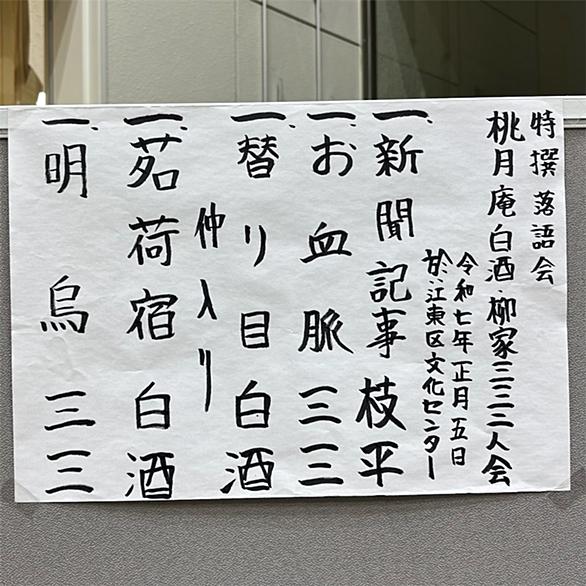 特撰 落語会
桃月庵白酒・柳家三三二人会
令和七年正月五日
於:江東区文化センター
一、新聞記事 枝平
一、お血脈 三三
一、替り目 白酒
仲入り
一、茗荷宿 白酒
一、明烏 三三